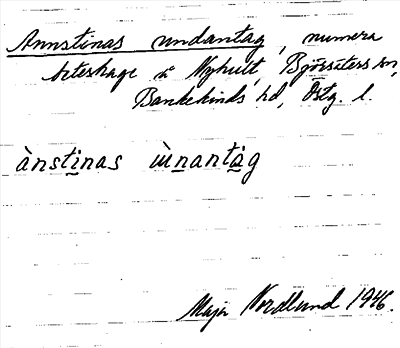 Annstinas undantag, numera
beteshage å Nyhult, Björsäters sn,
Bankekinds hd, Östg. l.
ànstinas ùnantàg
Maja Nordlund 1946.